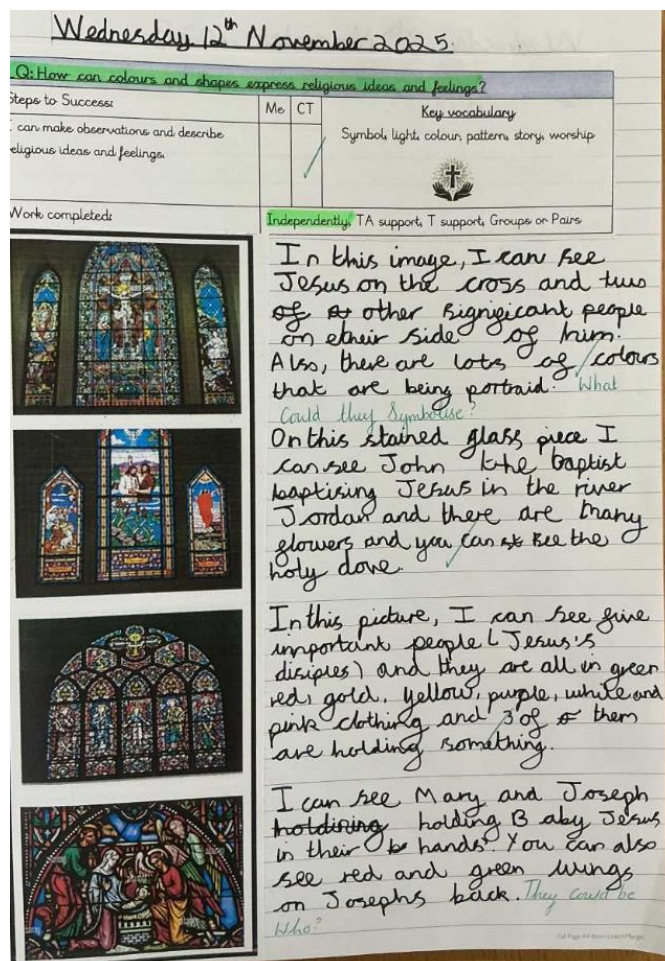 Wednesday 12th November 2025.
Q: How can colours and shapes express religious ideas and feelings?
Steps to Success:
Me
CT
Key vocabulary
can make observations and describe
eligious ideas and feelings.
Symbol, light, colour, pattern, story, worship
Work completed:
Independently, TA support, T support, Groups or Pairs
In this image, I can see
Jesus on the cross and two
of other significant people
on either side of him.
Also, there are lots of colours
that are being portraid. What
Could they Symbolise?
On this stained glass piece I
can see John the baptist
baptising Jesus in the river
Jordan and there are many
flowers and you can see the
holy dove.
In this picture, I can see five
important people (Jesus's
disiples) and they are all in green
red, gold, yellow, purple, white and
pink clothing and 3 of them
are holding something.
I can see Mary and Joseph
holdining holding Baby Jesus
in their hands. You can also
see red and green wings
on Josephs back. They could be
Who?